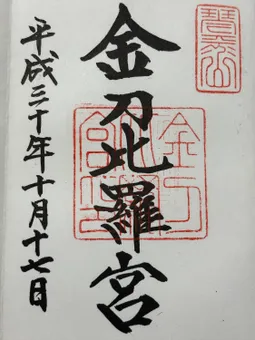 金刀比羅宮
平成三十年十月十七日